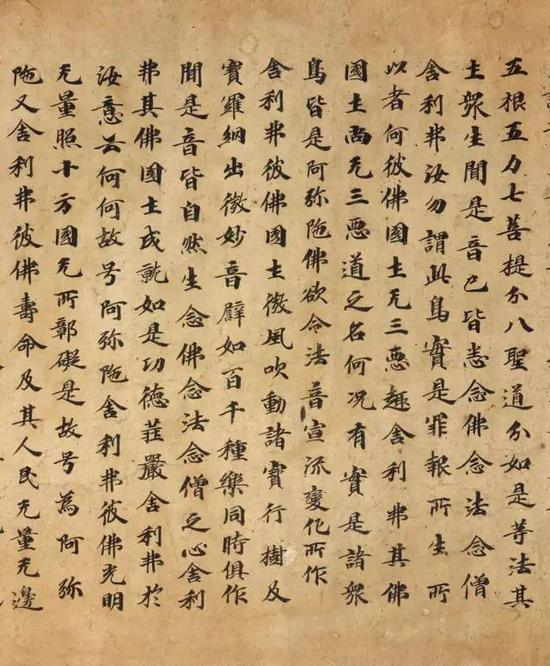 五根五力七菩提分八聖道分如是等法其
土眾生聞是音已皆悉念佛念法念僧
舍利弗汝勿謂此鳥實是罪報所生所
以者何彼佛國土无三惡趣舍利弗其佛
國土尚无三惡道之名何況有實是諸眾
鳥皆是阿弥陁佛欲令法音宣流變化所作
舍利弗彼佛國土微風吹動諸寶行樹及
寶羅網出微妙音譬如百千種樂同時俱作
聞是音皆自然生念佛念法念僧之心舍利
弗其佛國土成就如是功德莊嚴舍利弗於
汝意云何何故号阿弥陁舍利弗彼佛光明
无量照十方國无所鄣礙是故号為阿弥
陁又舍利弗彼佛壽命及其人民无量无邊